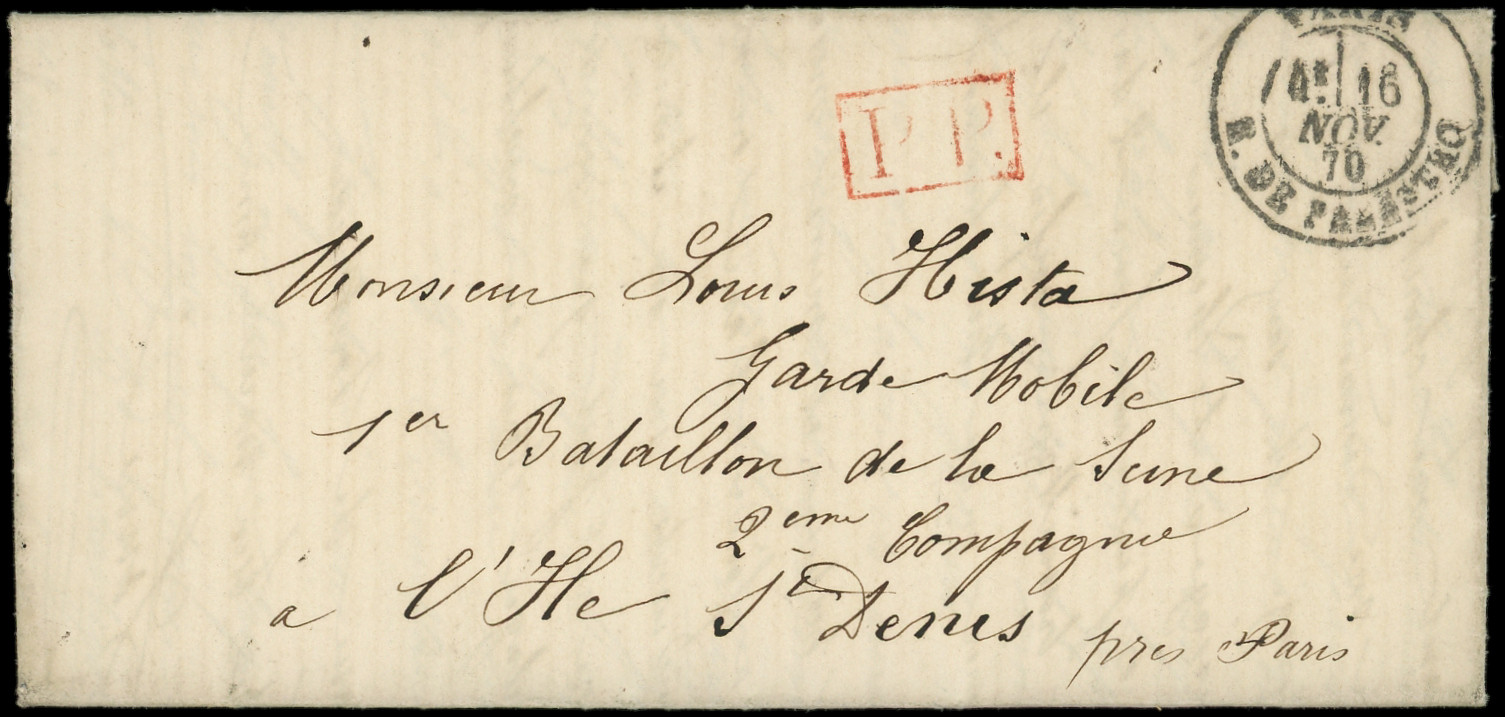 PARIS
16
NOV.
70
R. DE PALESTRO
P.P.
Monsieur Louis Hista
Garde Mobile
1er Bataillon de la Seine
2eme Compagnie
à l'Ile St Denis près Paris